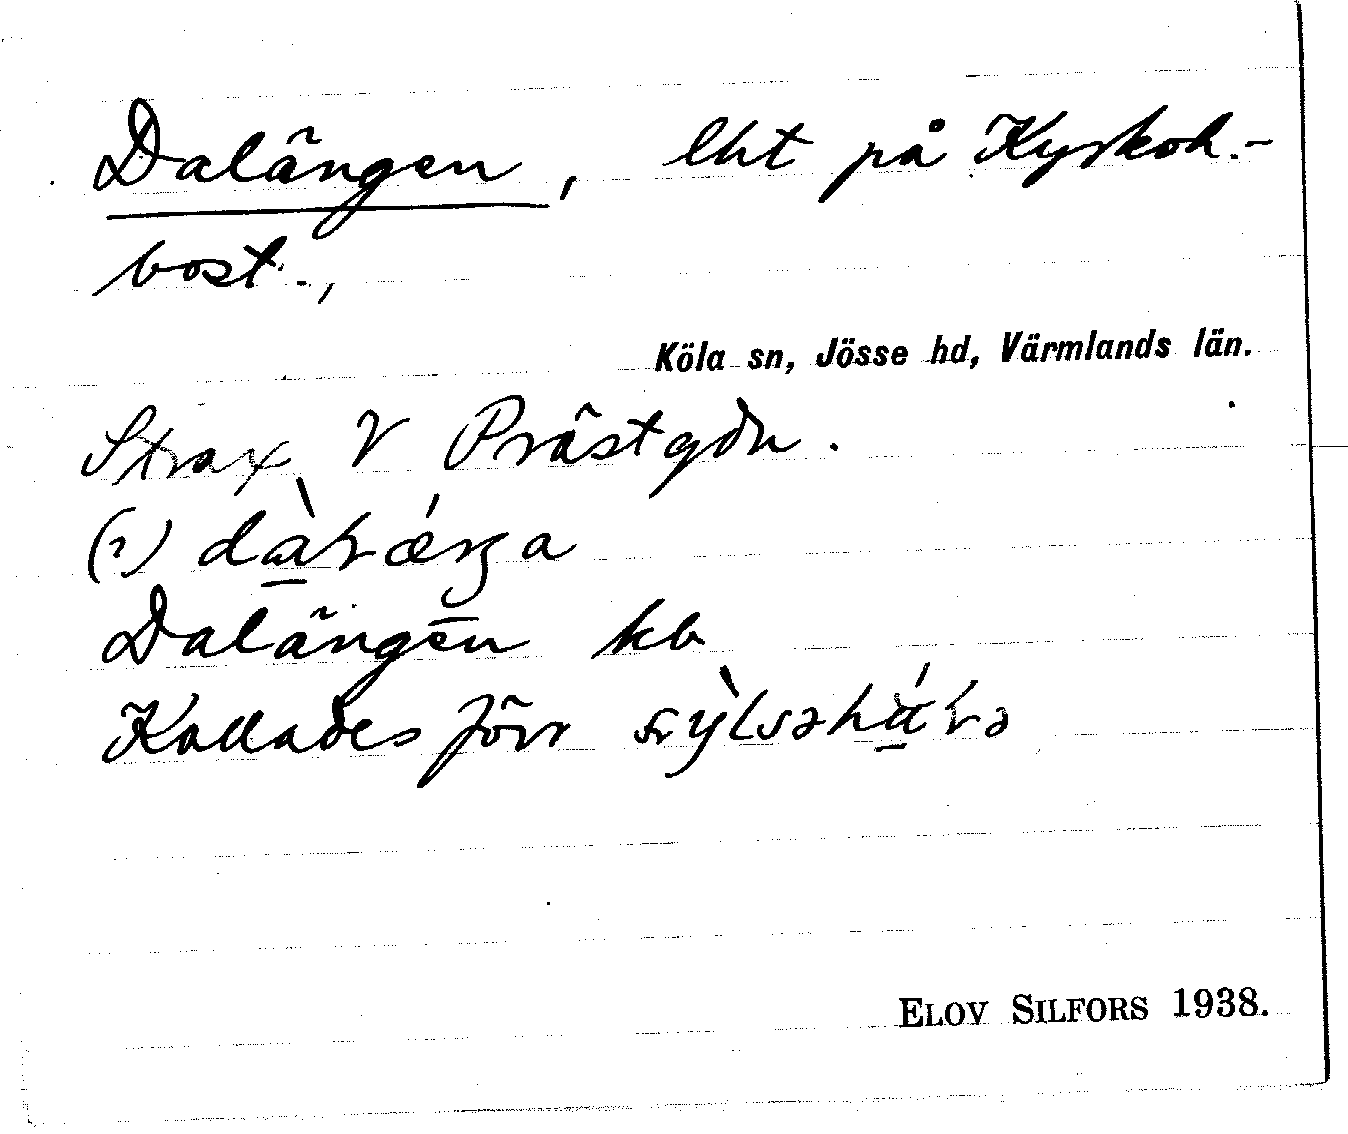 Dalängen, lht på Kyrkoh.-
bost.,
Köla sn, Jösse hd, Värmlands län.
Strax V Prästgdn.
(?)
Dalängen kb
Kallades förr
ELOV SILFORS 1938.